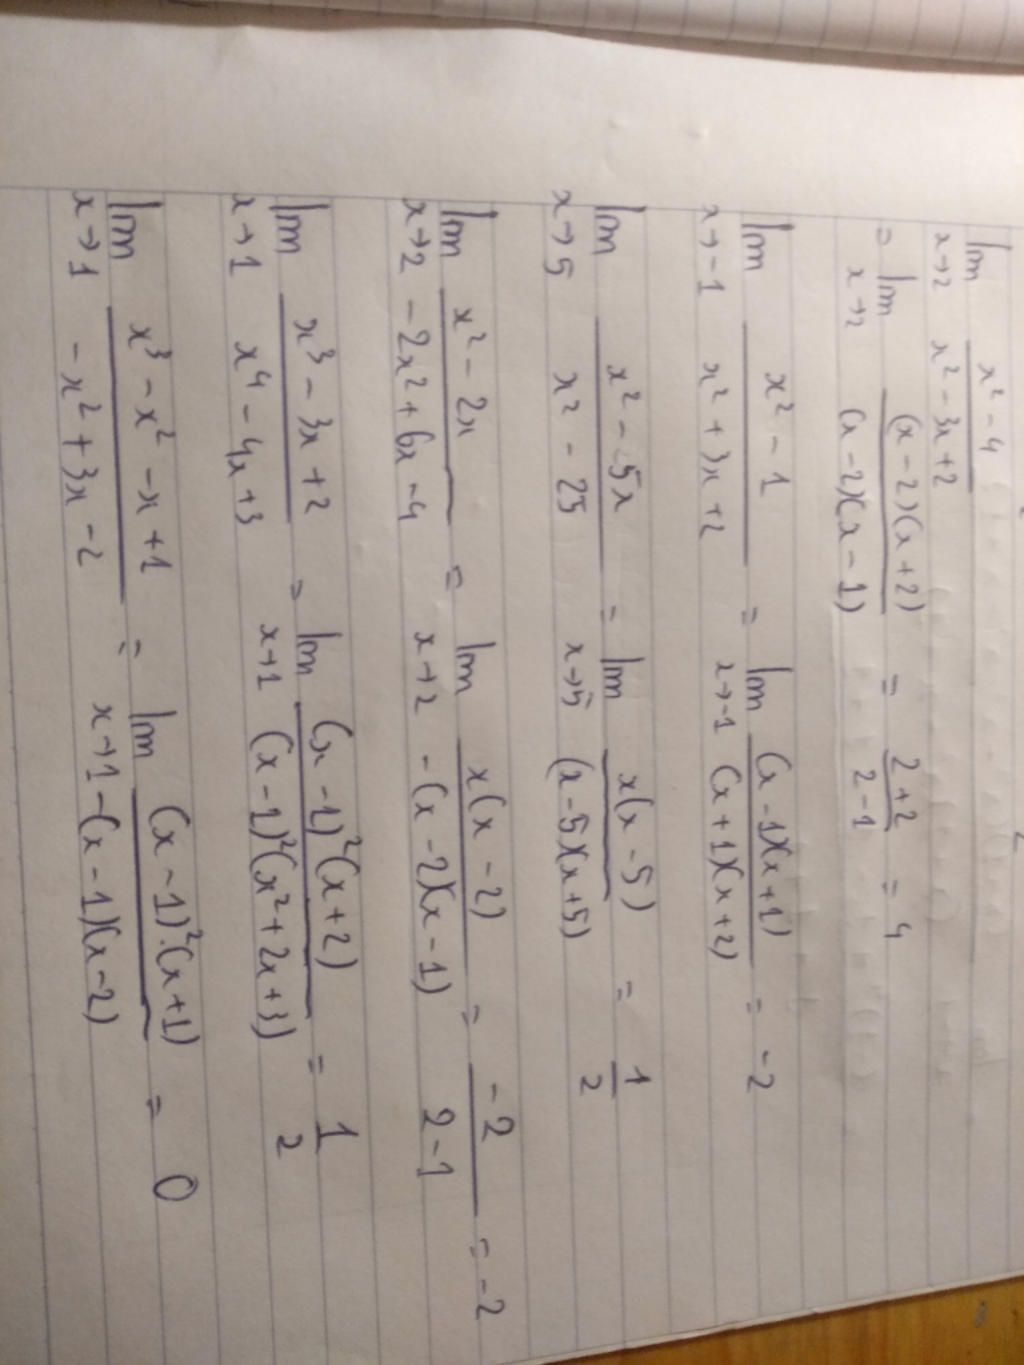 lim x→2 (x² - 4)/(x² - 3x + 2)
= lim x→2 ((x - 2)(x + 2))/((x - 2)(x - 1)) = (2 + 2)/(2 - 1) = 4
lim x→-1 (x² - 1)/(x² + 3x + 2) = lim x→-1 ((x - 1)(x + 1))/((x + 1)(x + 2)) = -2
lim x→5 (x² - 5x)/(x² - 25) = lim x→5 (x(x - 5))/((x - 5)(x + 5)) = 1/2
lim x→2 (x² - 2x)/(-2x² + 6x - 4) = lim x→2 (x(x - 2))/(-(x - 2)(x - 1)) = (-2)/(2 - 1) = -2
lim x→1 (x³ - 3x + 2)/(x⁴ - 4x + 3) = lim x→1 ((x - 1)²(x + 2))/((x - 1)²(x² + 2x + 3)) = 1/2
lim x→1 (x³ - x² - x + 1)/(-x² + 3x - 2) = lim x→1 ((x - 1)².(x + 1))/(-(x - 1)(x - 2)) = 0